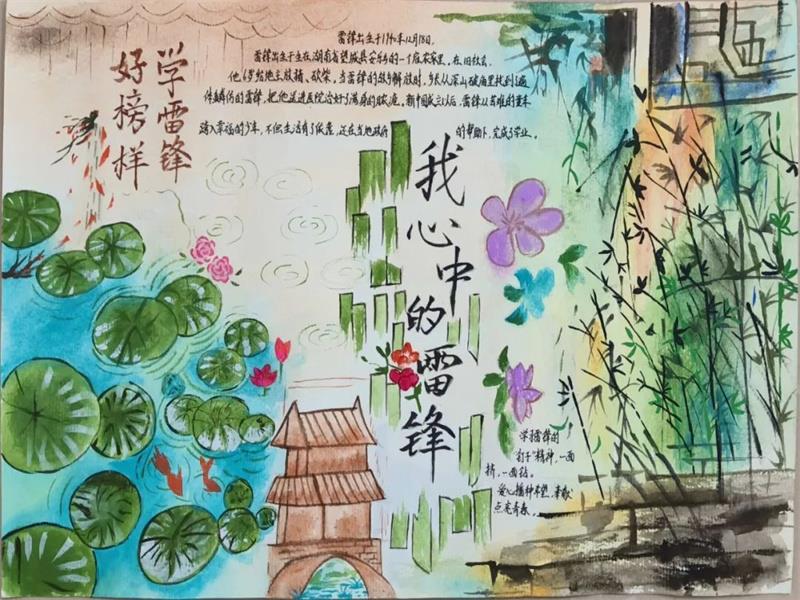 学雷锋
好榜样
雷锋出生于1940年12月18日。
雷锋出生于生在湖南省望城县安乐乡的一个贫农家里，在旧社会，
他6岁给地主放猪、砍柴，当雷锋的故乡解放时，乡长从深山破庙里找到遍
体鳞伤的雷锋，把他送进医院治好了满身的脓疮，新中国成立以后，雷锋从苦难的童年
踏入幸福的少年，不但生活有了保障，还在当地政府的帮助下，完成了学业。
我心中的雷锋
学习雷锋的
“钉子”精神，一面
挤，一面钻。
爱心播种希望，奉献
点亮青春。